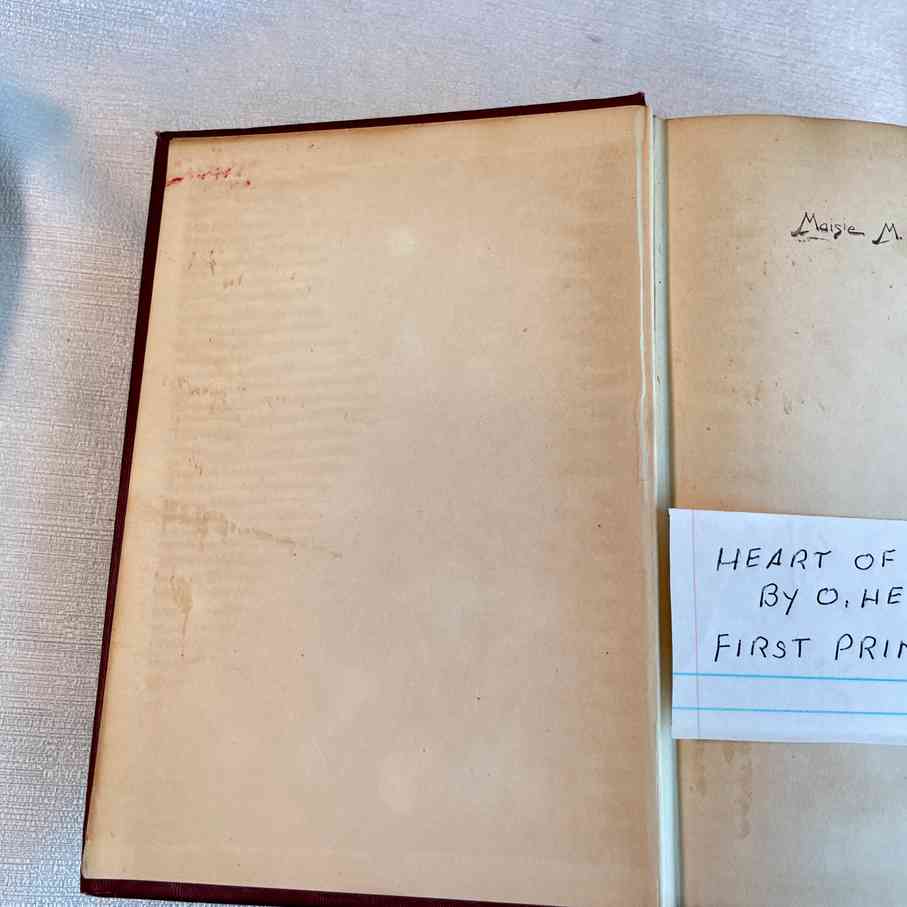 Maisie M.
HEART OF
BY O. HE
FIRST PRIN